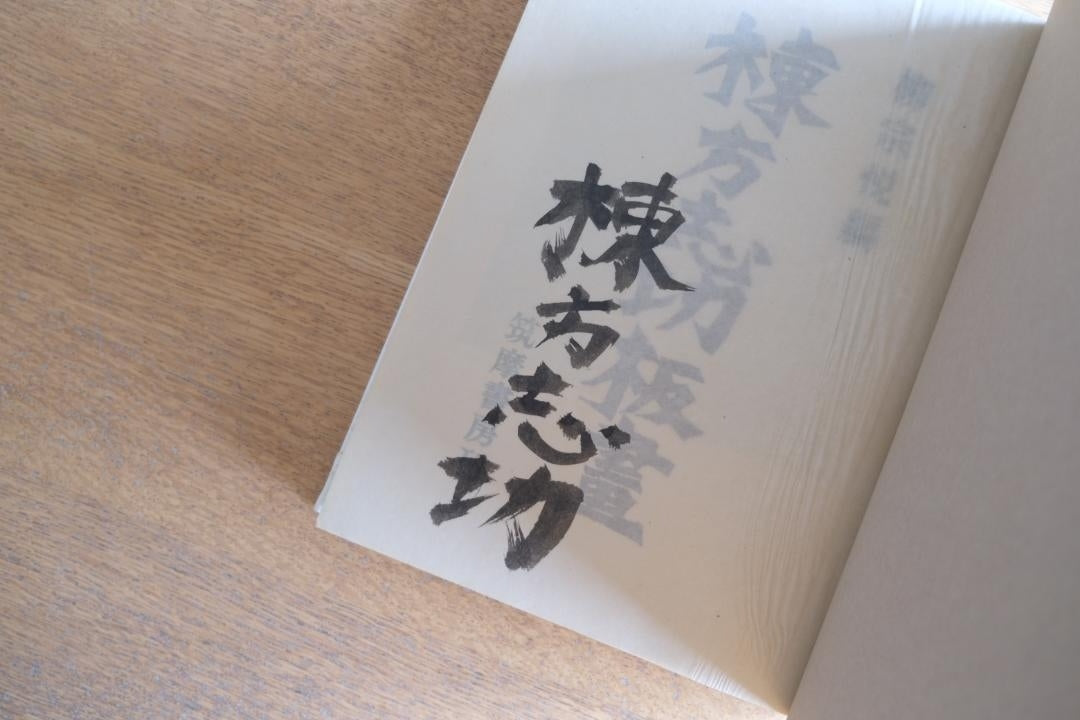 柳宗悦編
棟方志功板畫
棟方志功
筑摩書房